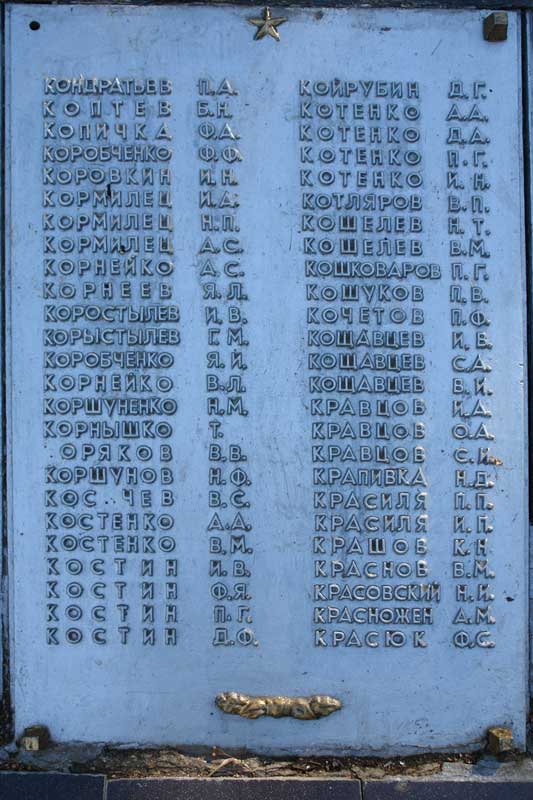 КОНДРАТЬЕВ П.А.
КОПТЕВ Б.Н.
КОПИЧКА Ф.А.
КОРОБЧЕНКО Ф.Ф.
КОРОВКИН И.Н.
КОРМИЛЕЦ И.А.
КОРМИЛЕЦ Н.П.
КОРМИЛЕЦ А.С.
КОРНЕЙКО А.С.
КОРНЕЕВ Я.Л.
КОРОСТЫЛЕВ И.В.
КОРЫСТЫЛЕВ Г.М.
КОРОБЧЕНКО Я.Й.
КОРНЕЙКО В.Л.
КОРШУНЕНКО Н.М.
КОРНЫШКО Т.
ОРЯКОВ В.В.
КОРШУНОВ Н.Ф.
КОС ЧЕВ В.С.
КОСТЕНКО А.А.
КОСТЕНКО В.М.
КОСТИН И.В.
КОСТИН Ф.Я.
КОСТИН П.Г.
КОСТИН Д.Ф.
КОЙРУБИН Д.Г.
КОТЕНКО А.А.
КОТЕНКО Д.А.
КОТЕНКО П.Г.
КОТЕНКО И.Н.
КОТЛЯРОВ В.П.
КОШЕЛЕВ Н.Т.
КОШЕЛЕВ В.М.
КОШКОВАРОВ П.Г.
КОШУКОВ П.В.
КОЧЕТОВ П.Ф.
КОЩАВЦЕВ И.В.
КОЩАВЦЕВ С.А.
КОЩАВЦЕВ В.И.
КРАВЦОВ И.А.
КРАВЦОВ О.А.
КРАВЦОВ С.И.
КРАПИВКА Н.Д.
КРАСИЛЯ П.П.
КРАСИЛЯ И.П.
КРАШОВ К.Н.
КРАСНОВ В.М.
КРАСОВСКИЙ Н.И.
КРАСНОЖЕН А.М.
КРАСЮК Ф.С.